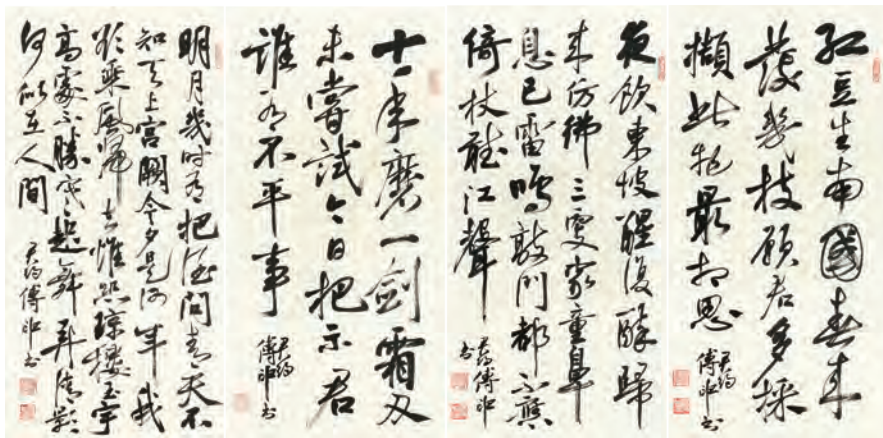 紅豆生南國春來
發幾枝願君多採
擷此物最相思
君約
傅申書
夜飲東坡醒復醉歸
來仿彿三更家童鼻
息已雷鳴敲門都不應
倚杖聽江聲
君約傅申
書
十年磨一劍霜刃
未嘗試今日把示君
誰有不平事
君約
傅申書
明月幾時有把酒問青天不
知天上宮闕今夕是何年我
欲乘風歸去惟恐瓊樓玉宇
高處不勝寒起舞弄清影
何似在人間
君約傅申書